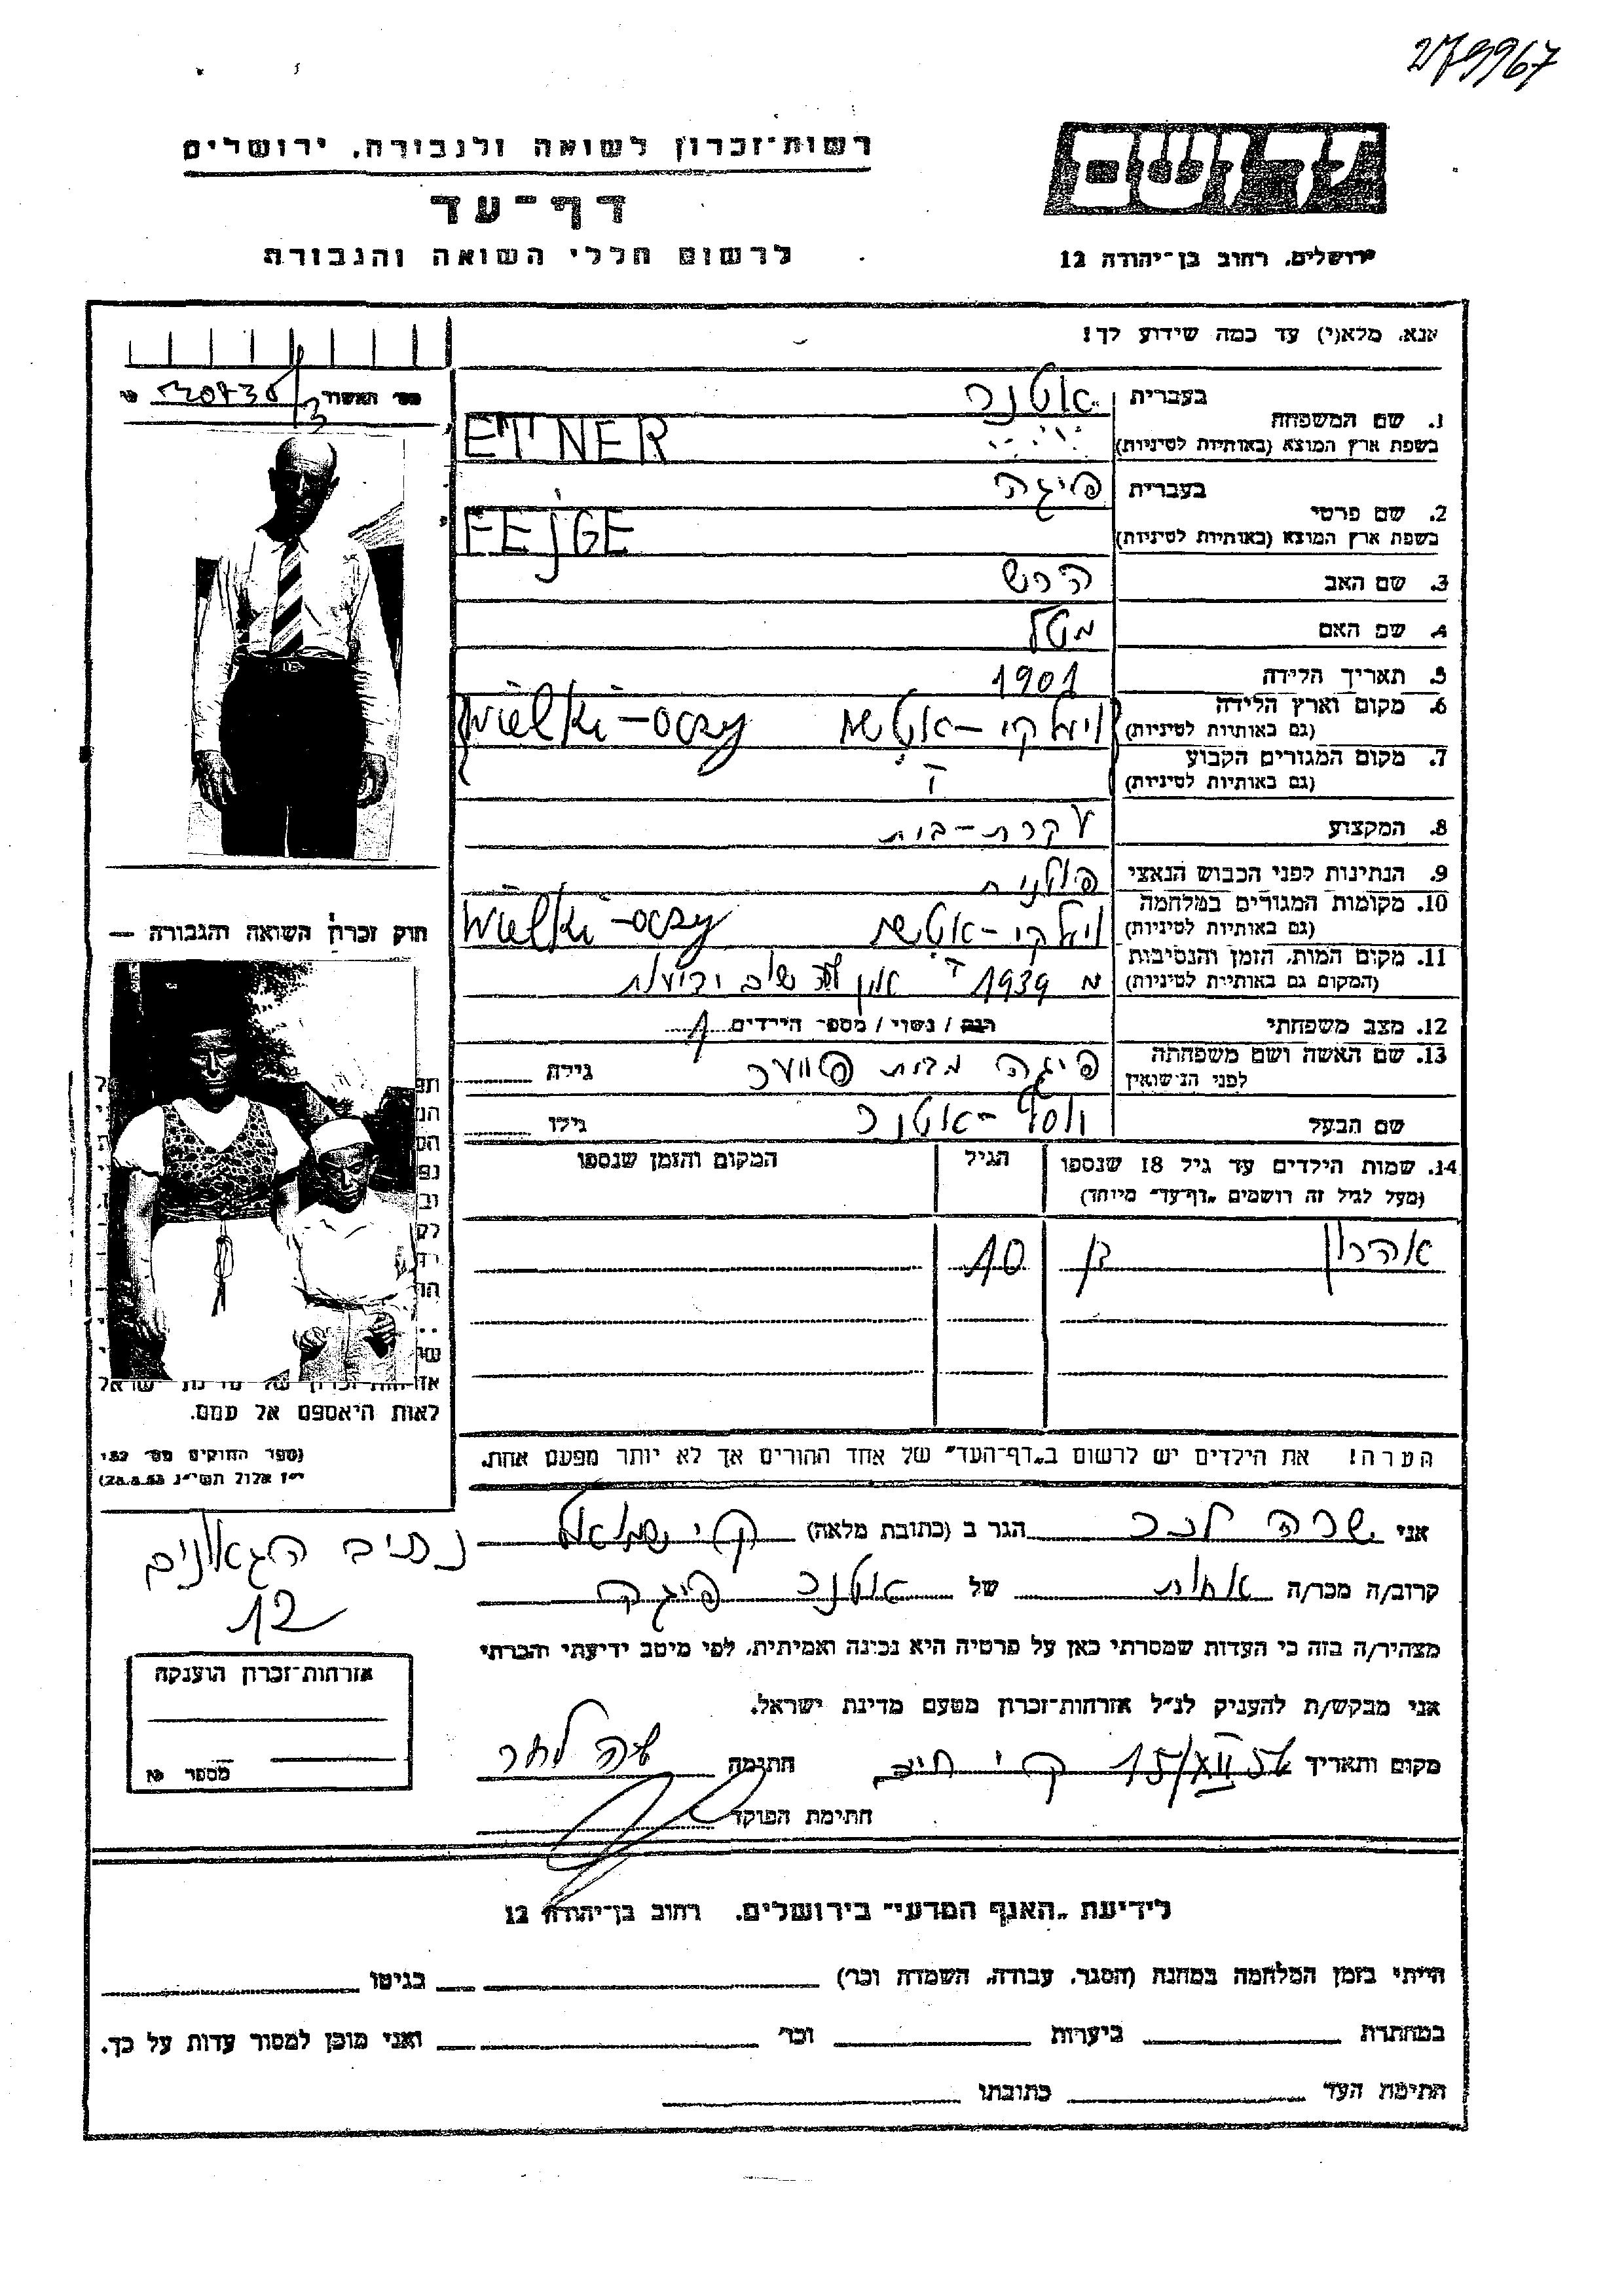 279967
רשות־זכרון לשואה ולגבורה, ירושלים
יד ושם
דף־עד
לרשום חללי השואה והגבורה
ירושלים, רחוב בן־יהודה 12
אנא, מלא(י) עד כמה שידוע לך!
מס' האשור
1. שם המשפחה בעברית אטנר
בשפת ארץ המוצא (באותיות לטיניות) ETNER
2. שם פרטי בעברית פיגה
בשפת ארץ המוצא (באותיות לטיניות) FEJGE
3. שם האב הרש
4. שם האם מטל
5. תאריך הלידה 1901
6. מקום וארץ הלידה
(גם באותיות לטיניות) Wielki-oczy
7. מקום המגורים הקבוע
(גם באותיות לטיניות)
8. המקצוע עקרת-בית
9. הנתינות לפני הכבוש הנאצי פולנית
10. מקומות המגורים במלחמה
(גם באותיות לטיניות) Wielki-oczy
11. מקום המות, הזמן והנסיבות
(המקום גם באותיות לטיניות) מ 1939 אין
12. מצב משפחתי רווק / נשוי / מספר הילדים 1
13. שם האשה ושם משפחתה פיגה מבית גילה
לפני הנישואין
שם הבעל אטנר גילו
14. שמות הילדים עד גיל 18 שנספו הגיל המקום והזמן שנספו
(מעל לגיל זה רושמים „דף־עד" מיוחד)
אהרון בן 10
הערה! את הילדים יש לרשום ב„דף־העד" של אחד ההורים אך לא יותר מפעם אחת.
חוק זכרון השואה והגבורה —
לאות היאספם אל עמם.
(ספר החוקים מס' 132
י"ז אלול תשי"ג 28.8.53)
אני שרה לכר הגר ב (כתובת מלאה) ק' שמואל
נתיב הגאונים
12
קרוב/ה מכר/ה אחות של אטנר פיגה
מצהיר/ה בזה כי העדות שמסרתי כאן על פרטיה היא נכונה ואמיתית, לפי מיטב ידיעתי והכרתי
אני מבקש/ת להעניק לנ"ל אזרחות־זכרון מטעם מדינת ישראל.
מקום ותאריך 15/XII 56 ק' חתימה
חתימת הפוקד
אזרחות־זכרון הוענקה
מספר
לידיעת „האגף המדעי" בירושלים, רחוב בן־יהודה 12
הייתי בזמן המלחמה במחנה (הסגר, עבודה, השמדה וכו') בגיטו
במחתרת ביערות וכו' ואני מוכן למסור עדות על כך.
חתימת העד כתובתו